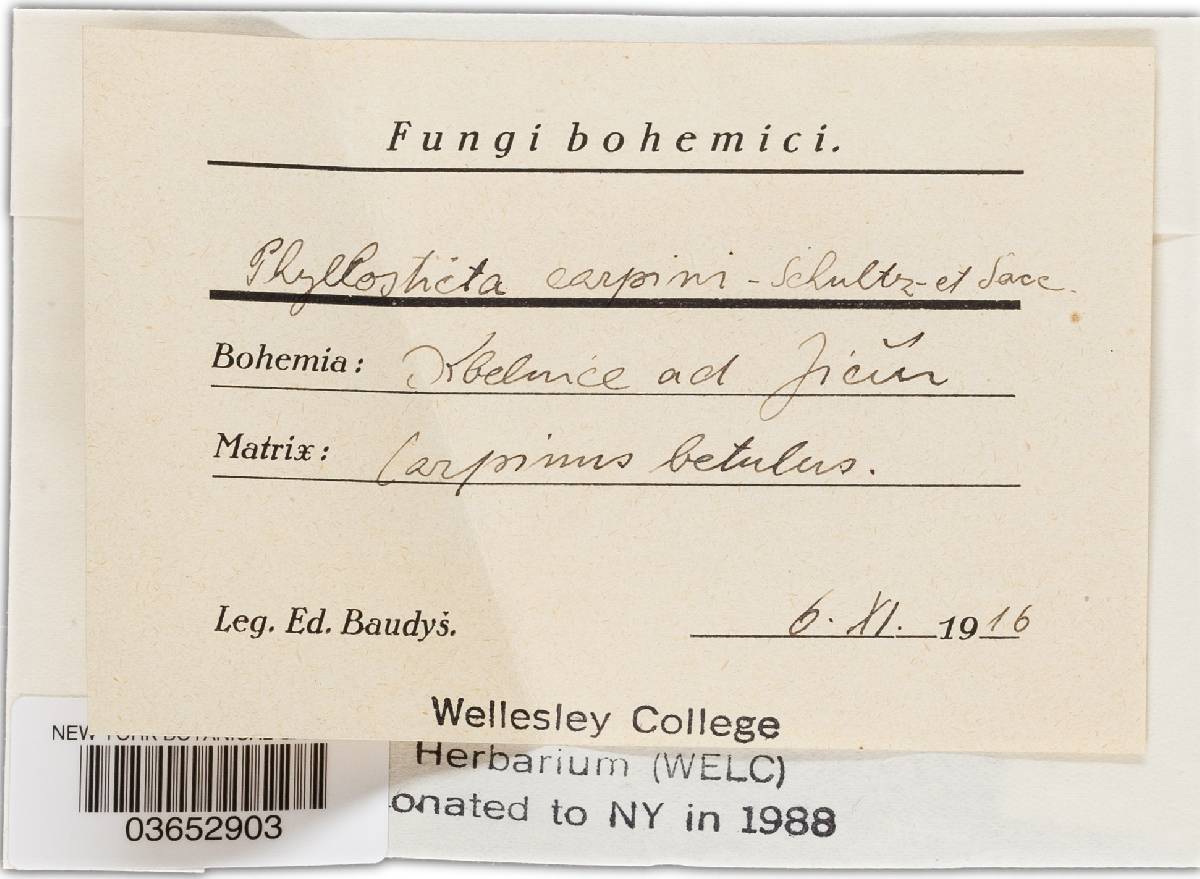 Fungi bohemici.
Phyllosticta carpini - Schultz - et Sacc.
Bohemia: Kbelnice ad Jičín
Matrix: Carpinus betulus.
Leg. Ed. Baudyš.
6. XI. 1916
Wellesley College
Herbarium (WELC)
onated to NY in 1988
NEW YORK BOTANICAL
03652903